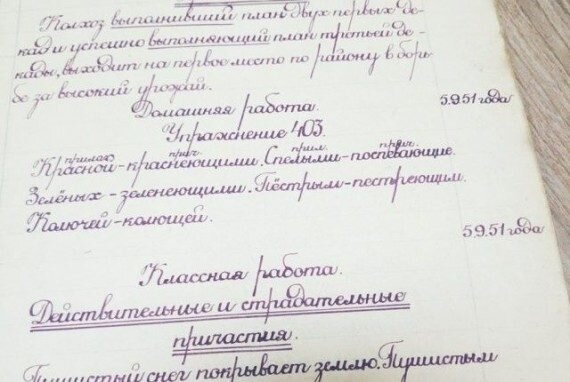 Колхоз выполнивший план двух первых де-
кад и успешно выполняющий план третьей де-
кады, выходит на первое место по району в борь-
бе за высокий урожай.
5.9.51 года
Домашняя работа.
Упражнение 403.
прилаг. прич. прил. прич.
Красной-краснеющими. Спелыми-поспевающие.
Зелёных-зеленеющими. Пёстрым-пестреющим.
Колючей-колющей.
5.9.51 года
Классная работа.
Действительные и страдательные
причастия.
Пушистый снег покрывает землю. Пушистым